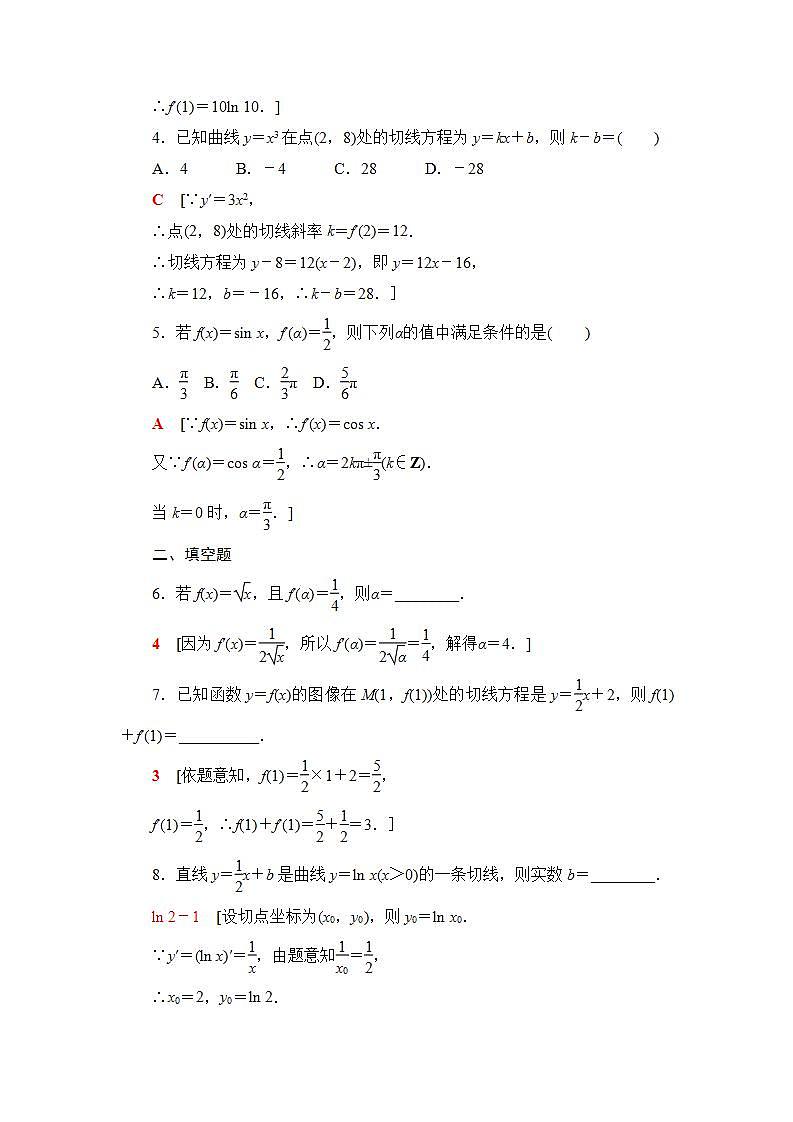 ∴f′(1)＝10ln 10．]
4．已知曲线 y＝x³在点(2，8)处的切线方程为 y＝kx＋b，则 k－b＝(　　)
A．4　　B．－4　　C．28　　D．－28
C　[∵y′＝3x²，
∴点(2，8)处的切线斜率 k＝f′(2)＝12．
∴切线方程为 y－8＝12(x－2)，即 y＝12x－16，
∴k＝12，b＝－16，∴k－b＝28．]
5．若 f(x)＝sin x，f′(α)＝1/2，则下列α的值中满足条件的是(　　)
A．π/3　B．π/6　C．2/3π　D．5/6π
A　[∵f(x)＝sin x，∴f′(x)＝cos x．
又∵f′(α)＝cos α＝1/2，∴α＝2kπ±π/3(k∈Z)．
当 k＝0 时，α＝π/3．]
二、填空题
6．若 f(x)＝√x，且 f′(α)＝1/4，则α＝________．
4　[因为 f′(x)＝1/(2√x)，所以 f′(α)＝1/(2√α)＝1/4，解得α＝4．]
7．已知函数 y＝f(x)的图像在 M(1，f(1))处的切线方程是 y＝1/2x＋2，则 f(1)
＋f′(1)＝__________．
3　[依题意知，f(1)＝1/2×1＋2＝5/2，
f′(1)＝1/2，∴f(1)＋f′(1)＝5/2＋1/2＝3．]
8．直线 y＝1/2x＋b 是曲线 y＝ln x(x＞0)的一条切线，则实数 b＝________．
ln 2－1　[设切点坐标为(x₀，y₀)，则 y₀＝ln x₀．
∵y′＝(ln x)′＝1/x，由题意知1/x₀＝1/2，
∴x₀＝2，y₀＝ln 2．